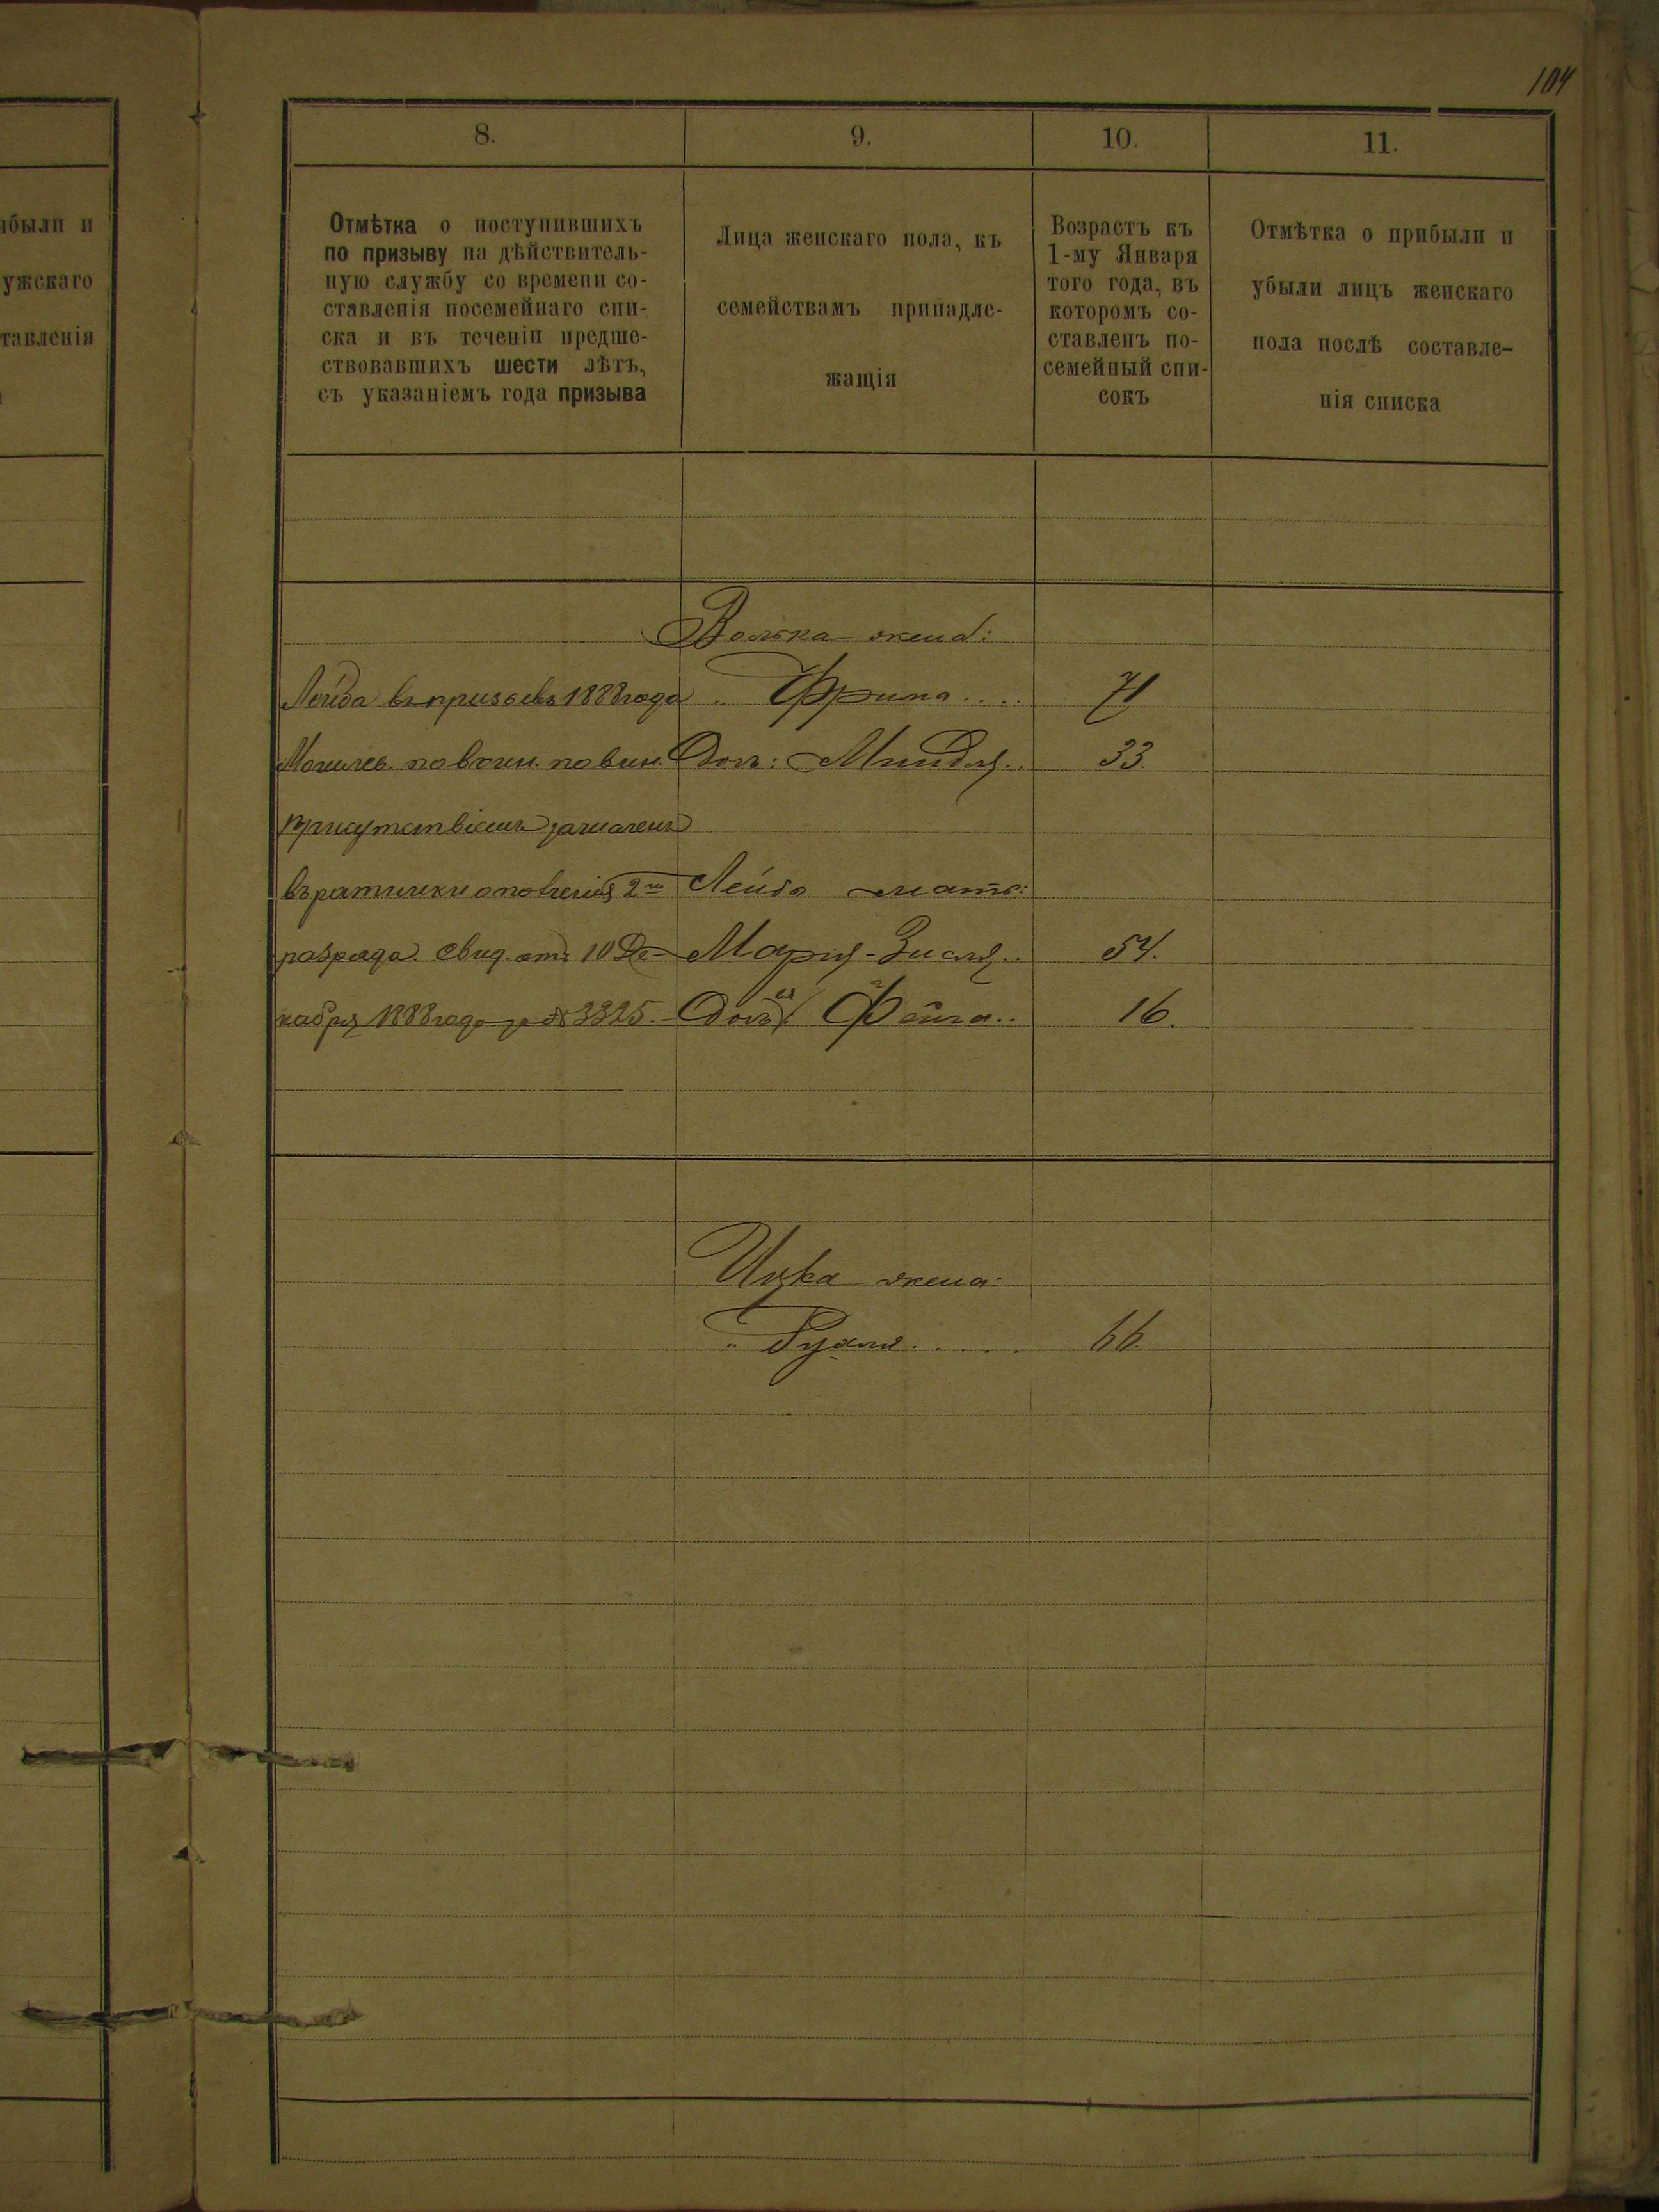 104
8.
9.
10.
11.
ибыли и
ужскаго
тавленія
Отмѣтка о поступившихъ
по призыву на дѣйствитель-
ную службу со времени со-
ставленія посемейнаго спи-
ска и въ теченіи предше-
ствовавшихъ шести лѣтъ,
съ указаніемъ года призыва
Лица женскаго пола, къ
семействамъ принадле-
жащія
Возрастъ къ
1-му Января
того года, въ
которомъ со-
ставленъ по-
семейный спи-
сокъ
Отмѣтка о прибыли и
убыли лицъ женскаго
пола послѣ составле-
нія списка
Волька жена:
Лейба въ призывъ 1888 года
„ Фрума.... 71
Могилев. по воин. повин.
Доч: Миндля.. 33.
присутствіемъ зачисленъ
въ ратники ополченія 2го
Лейба мать:
разряда. Свид. отъ 10 Де-
Марія-Зисля.. 54.
кабря 1888 года за № 3325.
Дочь ея: Фейга.. 16.
Ицка жена:
„ Рухля..... 66.